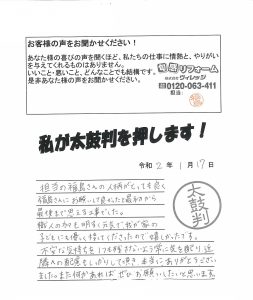 お客様の声をお聞かせください！
あなた様の喜びの声を聞くほど、私たちの仕事に情熱と、やりがい
を与えてくれるものはありません。
いいこと・悪いこと、どんなことでも結構です。
是非あなた様の声をお聞かせください。
リフォーム
株式会社ヴィレッジ
0120-063-411
担当:
私が太鼓判を押します！
令和 2 年 1 月 17 日
担当の福島さんの人柄がとても良く
福島さんにお願いして良かったと最初から
最後まで思える工事でした。
職人の方も明るく元気で我が家の
子どもにも優しく接してくださったので嬉しかったです。
不安な気持ちを1つも残さないよう常に気を配り近
隣への配慮もしっかりして頂き本当にありがとうござい
ました。また何かあれば ぜひお願いしたいと思います。
太鼓判